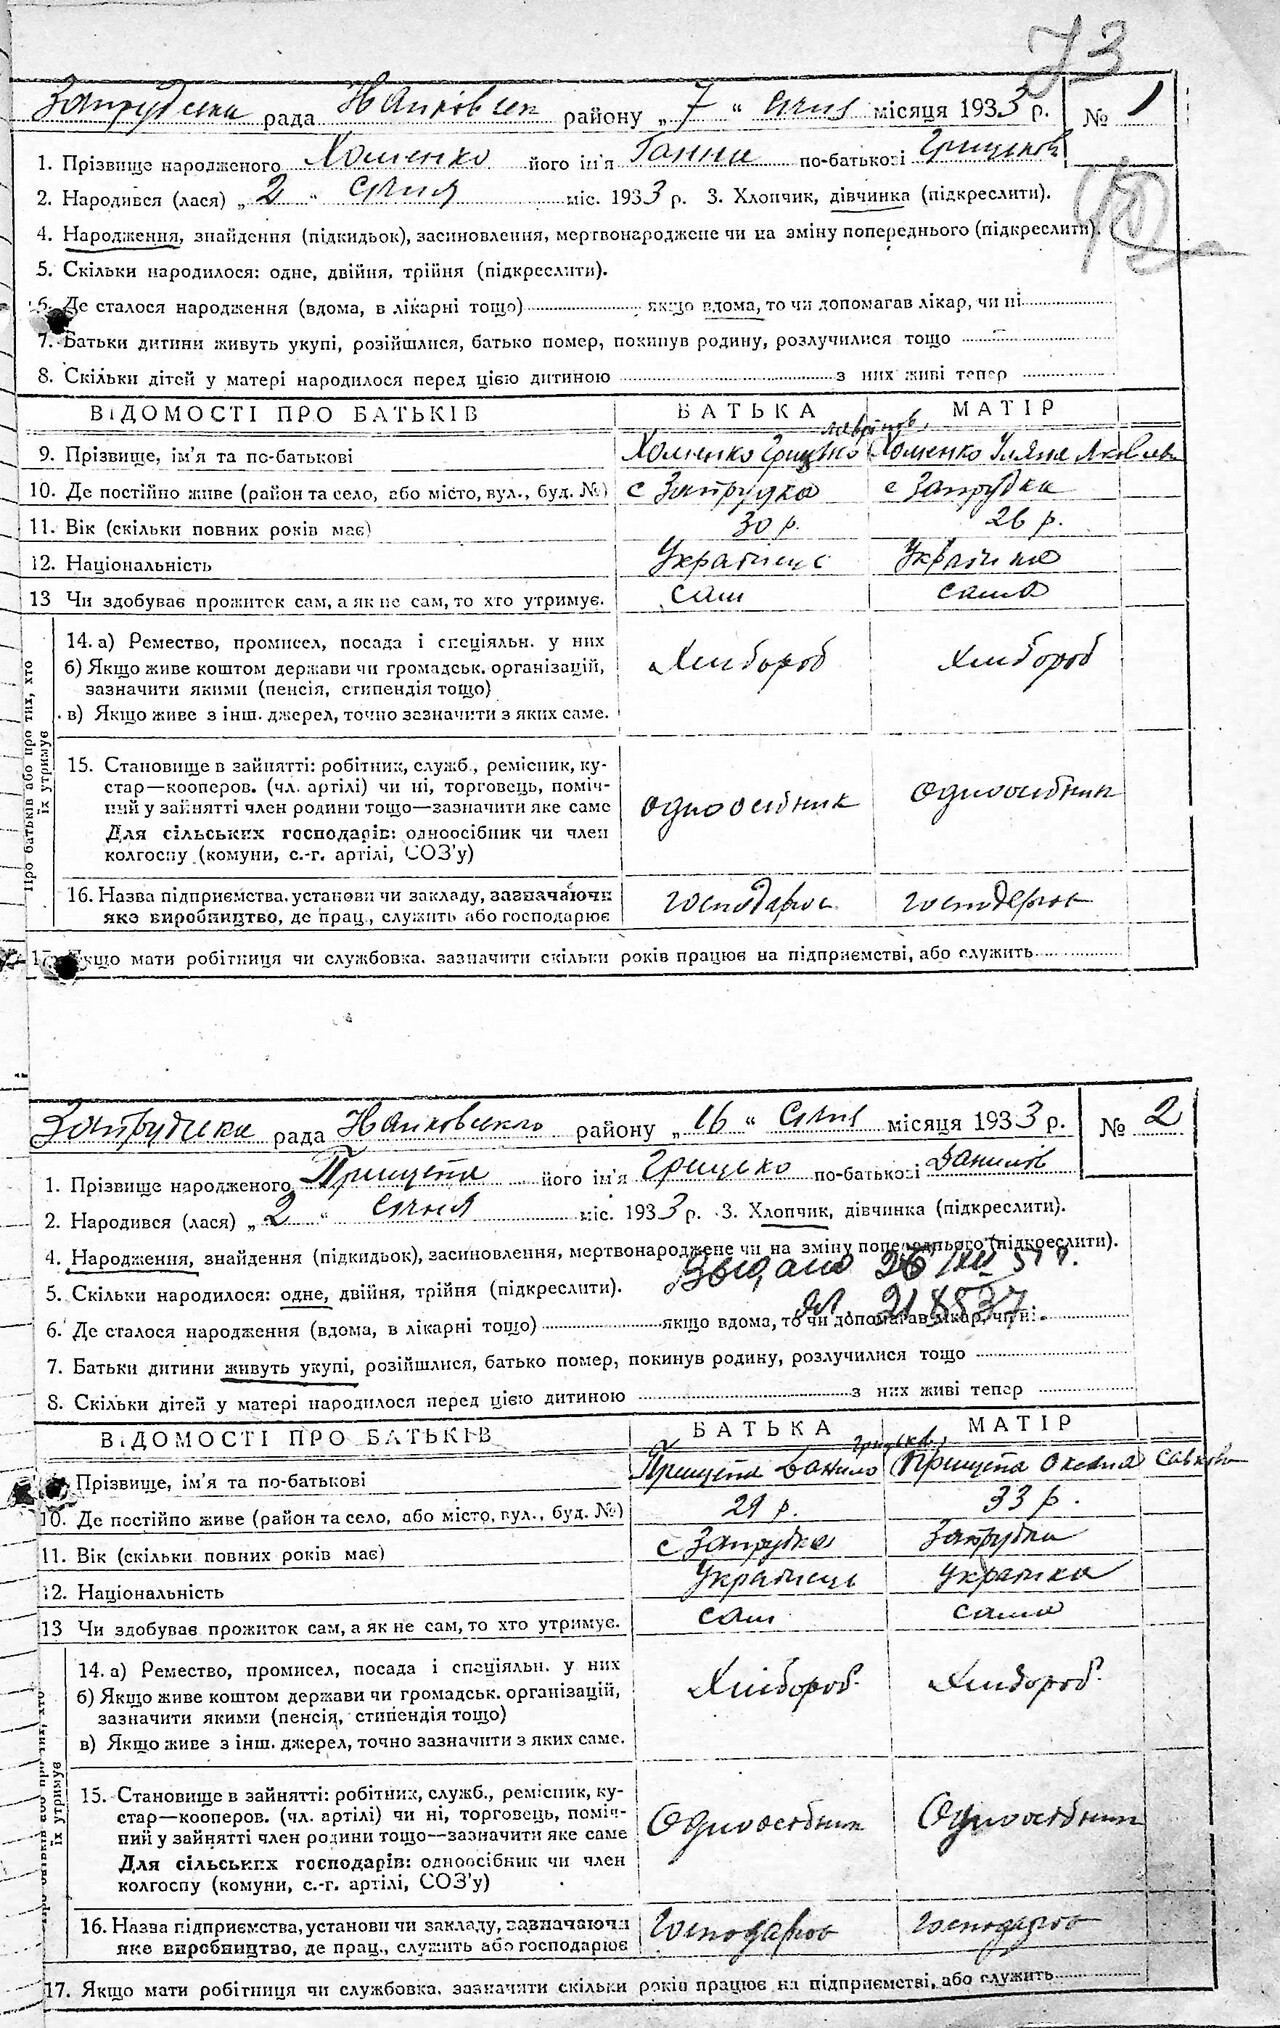 73
Запрудська рада район у „7" січня місяця 1933 р. № 1
1. Прізвище народженого Хоменко його ім'я Ганна по-батькові Грицьков
2. Народився (лася) „2" січня міс. 1933 р. 3. Хлопчик, дівчинка (підкреслити).
4. Народження, знайдення (підкидьок), засиновлення, мертвонароджене чи на зміну попереднього (підкреслити).
5. Скільки народилося: одне, двійня, трійня (підкреслити).
6. Де сталося народження (вдома, в лікарні тощо) якщо вдома, то чи допомагав лікар, чи ні
7. Батьки дитини живуть укупі, розійшлися, батько помер, покинув родину, розлучилися тощо
8. Скільки дітей у матері народилося перед цією дитиною з них живі тепер
ВІДОМОСТІ ПРО БАТЬКІВ БАТЬКА МАТІР
9. Прізвище, ім'я та по-батькові Хоменко Грицько Лаврінов. Хоменко Уляна Яковлев
10. Де постійно живе (район та село, або місто, вул., буд. №) с Запрудка с Запрудка
11. Вік (скільки повних років має) 30 р. 26 р.
12. Національність Українець Українка
13 Чи здобуває прожиток сам, а як не сам, то хто утримує. сам сама
Про батьків або про тих, хто їх утримує
14. а) Ремество, промисел, посада і спеціяльн. у них Хлібороб Хлібороб
б) Якщо живе коштом держави чи громадськ. організацій,
зазначити якими (пенсія, стипендія тощо)
в) Якщо живе з інш. джерел, точно зазначити з яких саме.
15. Становище в зайнятті: робітник, служб., ремісник, ку-
стар—кооперов. (чл. артілі) чи ні, торговець, поміч-
ний у зайнятті член родини тощо—зазначити яке саме одноосібник одноосібник
Для сільських господарів: одноосібник чи член
колгоспу (комуни, с.-г. артілі, СОЗ'у)
16. Назва підприємства, установи чи закладу, зазначаючи
яке виробництво, де прац., служить або господарює
17. Якщо мати робітниця чи службовка, зазначити скільки років працює на підприємстві, або служить
Запрудська рада району „16" січня місяця 1933 р. № 2
1. Прізвище народженого Прищепа його ім'я Грицько по-батькові Данилов
2. Народився (лася) „2" січня міс. 1933 р. 3. Хлопчик, дівчинка (підкреслити).
4. Народження, знайдення (підкидьок), засиновлення, мертвонароджене чи на зміну попереднього (підкреслити).
Выдано 26/VIII 51 г.
5. Скільки народилося: одне, двійня, трійня (підкреслити).
218537
6. Де сталося народження (вдома, в лікарні тощо) якщо вдома, то чи допомагав лікар, чи ні
7. Батьки дитини живуть укупі, розійшлися, батько помер, покинув родину, розлучилися тощо
8. Скільки дітей у матері народилося перед цією дитиною з них живі тепер
ВІДОМОСТІ ПРО БАТЬКІВ БАТЬКА МАТІР
Прізвище, ім'я та по-батькові Прищепа Данило Грицьків. Прищепа Оксана Савков
10. Де постійно живе (район та село, або місто, вул., буд. №) 29 р. 33 р.
11. Вік (скільки повних років має) с Запрудка Запрудка
12. Національність Українець Українка
13 Чи здобуває прожиток сам, а як не сам, то хто утримує. сам сама
їх утримує
14. а) Ремество, промисел, посада і спеціяльн. у них Хлібороб. Хлібороб.
б) Якщо живе коштом держави чи громадськ. організацій,
зазначити якими (пенсія, стипендія тощо)
в) Якщо живе з інш. джерел, точно зазначити з яких саме.
15. Становище в зайнятті: робітник, служб., ремісник, ку-
стар—кооперов. (чл. артілі) чи ні, торговець, поміч-
ний у зайнятті член родини тощо—зазначити яке саме Одноосібник Одноосібник
Для сільських господарів: одноосібник чи член
колгоспу (комуни, с.-г. артілі, СОЗ'у)
16. Назва підприємства, установи чи закладу, зазначаючи
яке виробництво, де прац., служить або господарює
17. Якщо мати робітниця чи службовка, зазначити скільки років працює на підприємстві, або служить